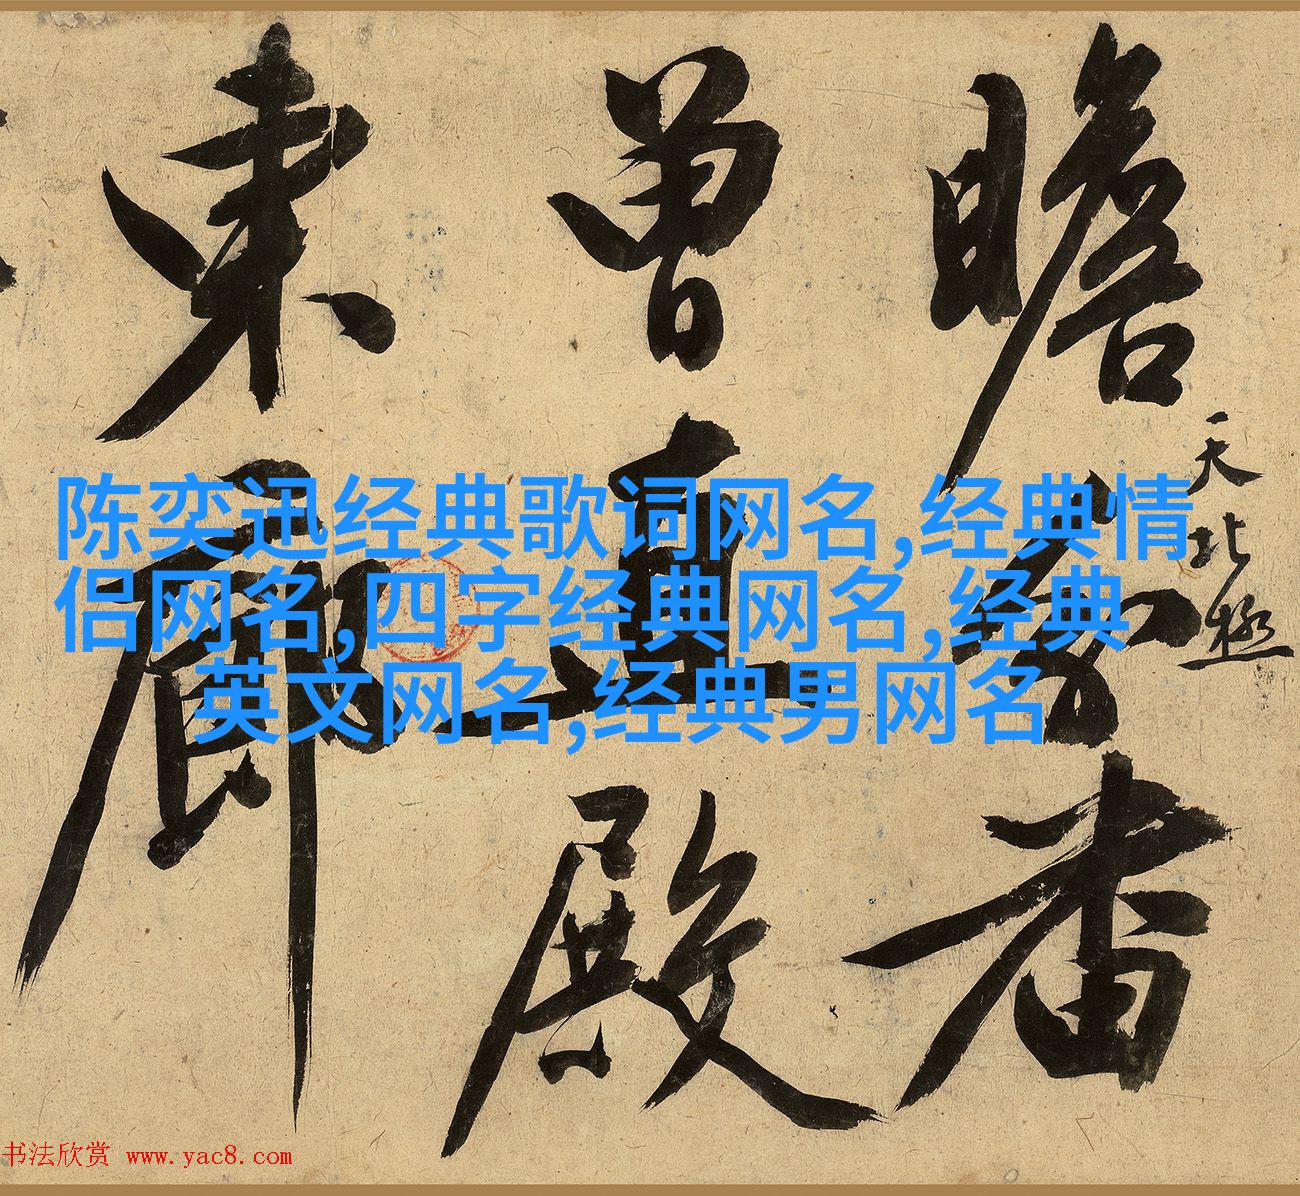 瞻
者
天北極
曾直
殿
東
廊
陈奕迅经典歌词网名,经典情
侣网名,四字经典网名,经典
英文网名,经典男网名
书法欣赏 www.yac8.com